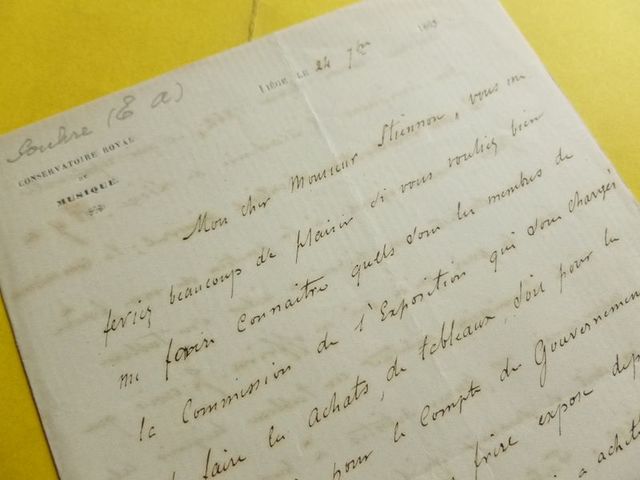 Soubre (E A)
CONSERVATOIRE ROYAL
DE
MUSIQUE
LIÉGE LE 24 7bre
Mon cher Monsieur Stiennon, vous me
feriez beaucoup de plaisir si vous vouliez bien
me faire connaître quels sont les membres de
la Commission de l'Exposition qui sont chargés
faire les achats, de tableaux, soit pour la
pour le Compte du Gouvernement
frère expose
a